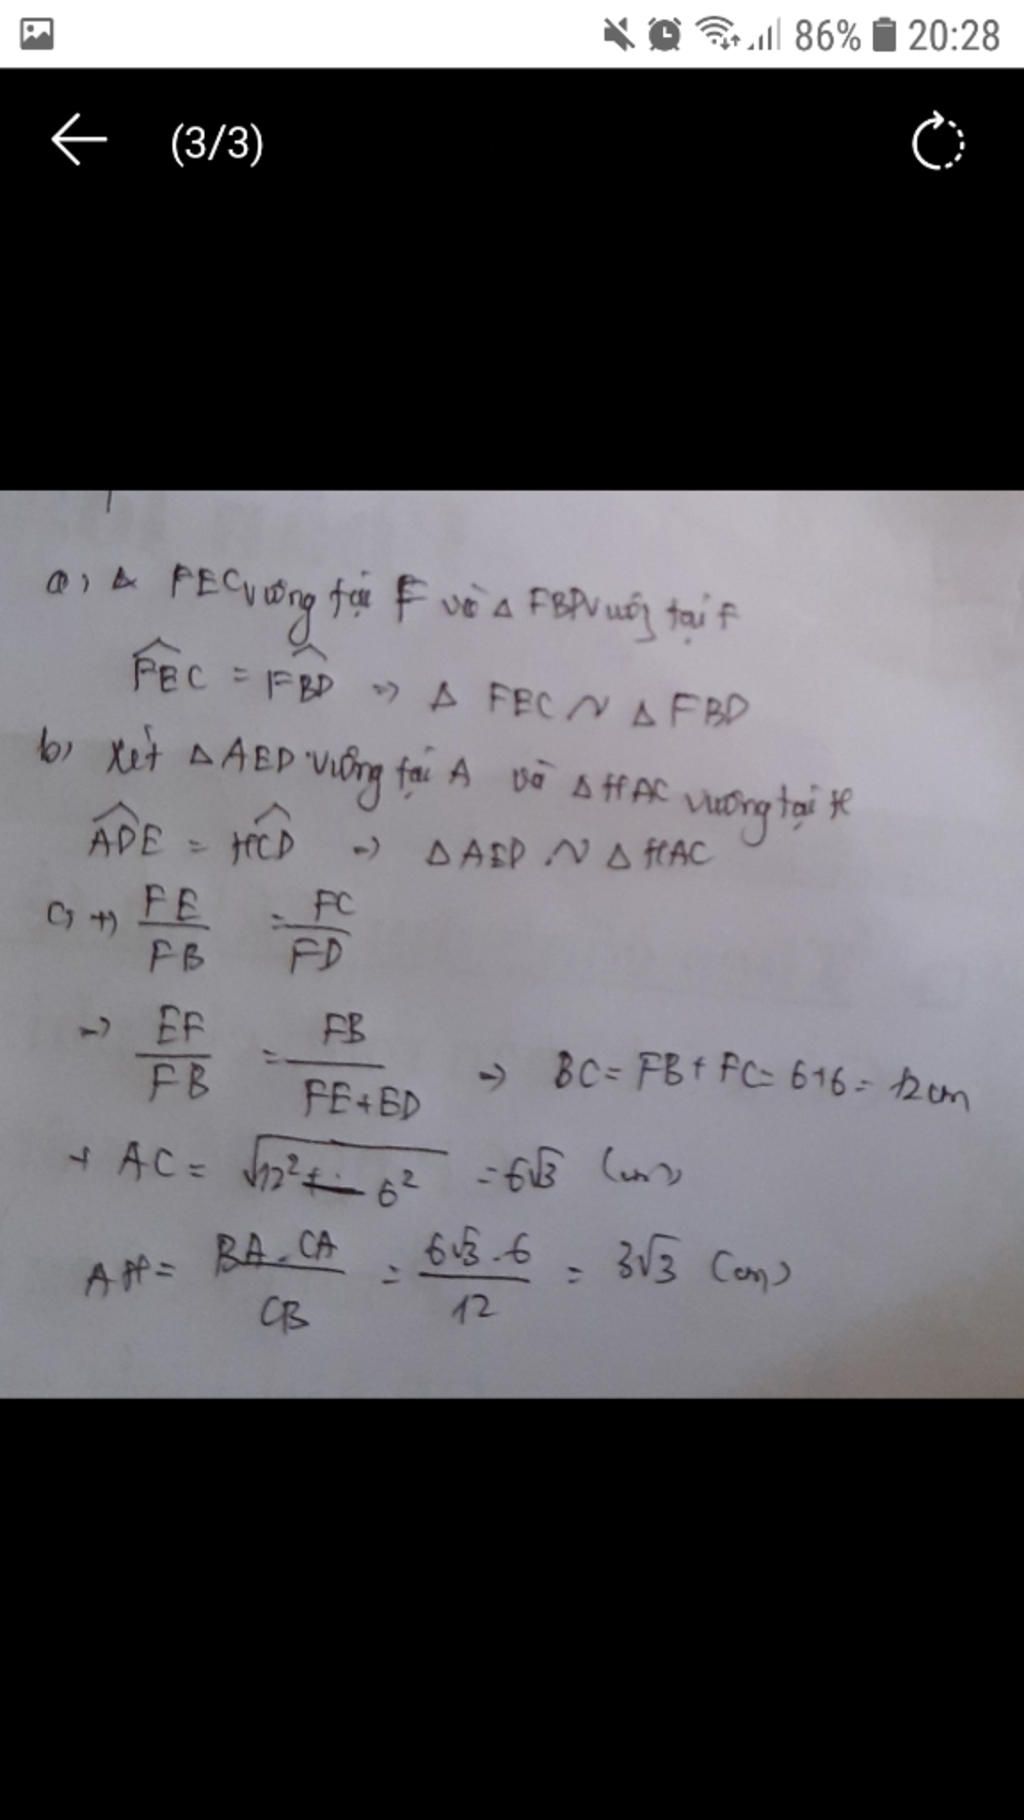 86% 20:28
(3/3)
a, Δ FEC vuông tại F và Δ FBD vuông tại F
FEC = FBD => Δ FEC ~ Δ FBD
b, Xét Δ AED vuông tại A và Δ HAC vuông tại H
ADE = HCD => Δ AED ~ Δ HAC
c, +, FE/FB = FC/FD
=> EF/FB = FB/FE+ED => BC = FB + FC = 6+6 = 12cm
+ AC = √12² - 6² = 6√3 (cm)
AH = BA.CA/CB = 6√3.6/12 = 3√3 (cm)